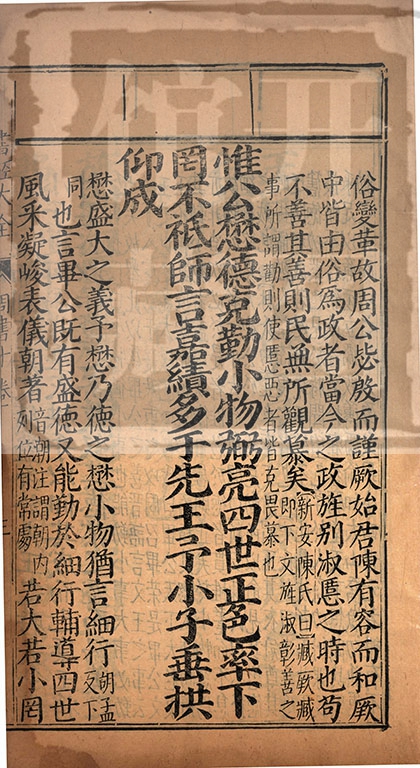 俗變革故周公毖殷而謹厥始君陳有容而和厥
中皆由俗爲政者當今之政旌别淑慝之時也苟
不善其善則民無所觀慕矣新安陳氏曰臧厥臧即下文旌淑彰善之
事所謂勸則使慝惡者皆克畏慕也
惟公懋德克勤小物弼亮四世正色率下
罔不祗師言嘉績多于先王予小子垂拱
仰成
懋盛大之義予懋乃德之懋小物猶言細行胡孟反下
同也言畢公既有盛德又能勤於細行輔導四世
風采凝峻表儀朝著音朝注謂朝内列位有常處若大若小罔
書經大全